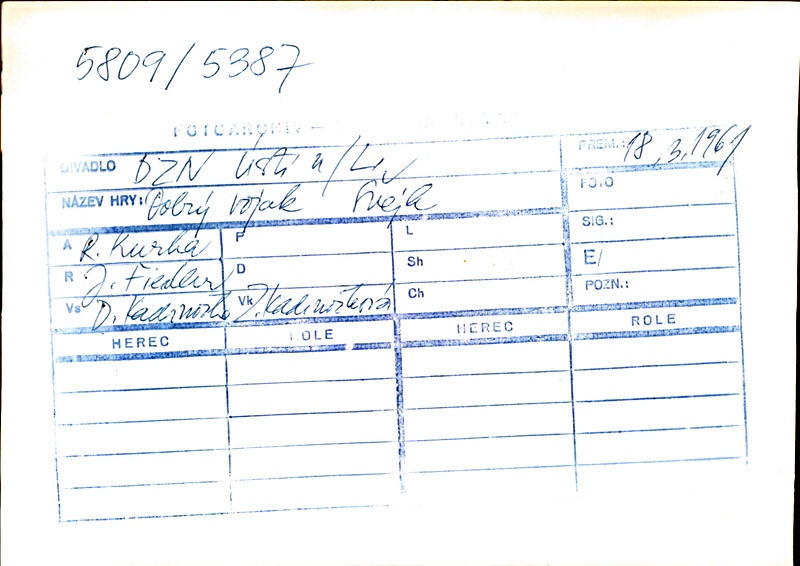 5809/5387
FOTOARCHIV —
DIVADLO DZN Ústí n/L. PREM.: 18.3.1961
NÁZEV HRY: Dobrý voják Švejk FOTO
A R. Kurka P L SIG.:
R J. Fiedler D Sh E/
Vs Vk Ch POZN.:
HEREC ROLE HEREC ROLE